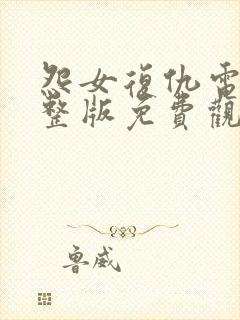 怨女復仇電
整版免費觀
魯威